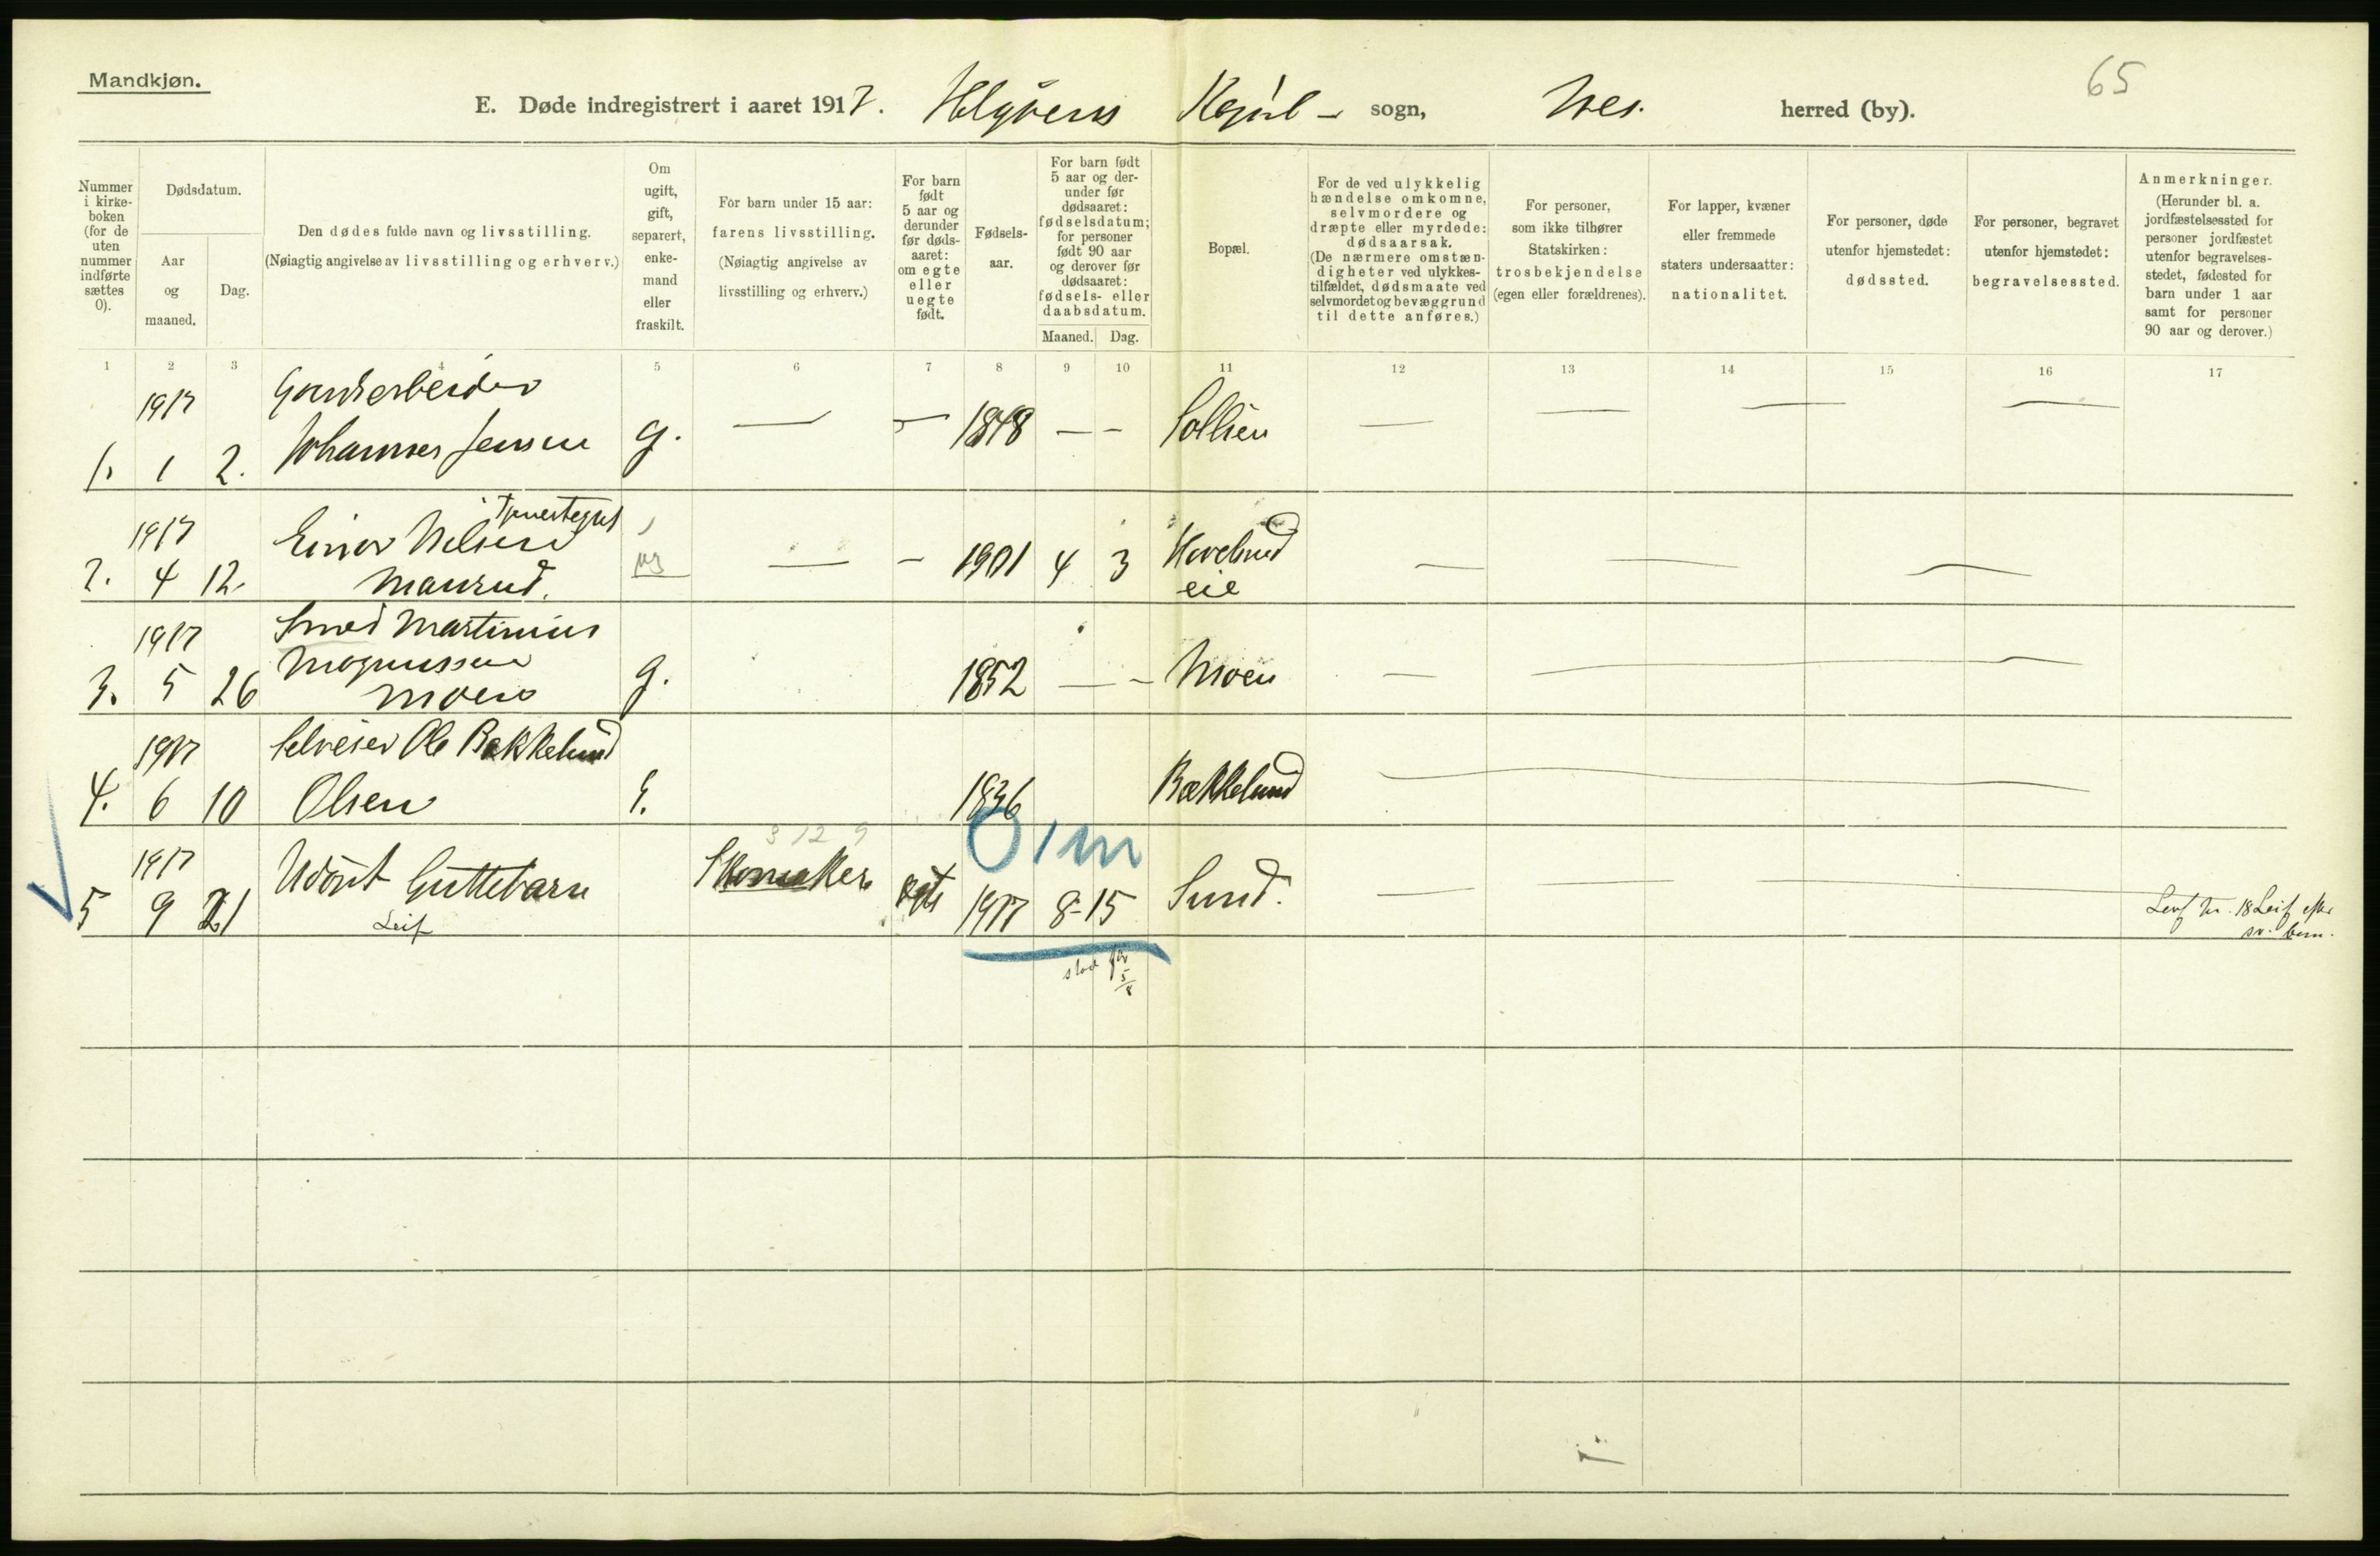 Mandkjøn.
65
E. Døde indregistrert i aaret 1917. Helgøens Kapel- sogn, Nes. herred (by).
Nummer i kirke-boken (for de uten nummer indførte sættes 0).
Dødsdatum.
Aar og maaned.
Dag.
Den dødes fulde navn og livsstilling.
(Nøiagtig angivelse av livsstilling og erhverv.)
Om ugift, gift, separert, enke-mand eller fraskilt.
For barn under 15 aar: farens livsstilling.
(Nøiagtig angivelse av livsstilling og erhverv.)
For barn født 5 aar og derunder før døds-aaret: om egte eller uegte født.
Fødsels-aar.
For barn født 5 aar og der-under før dødsaaret: fødselsdatum; for personer født 90 aar og derover før dødsaaret: fødsels- eller daabsdatum.
Maaned.
Dag.
Bopæl.
For de ved ulykkelig hændelse omkomne, selvmordere og dræpte eller myrdede: dødsaarsak.
(De nærmere omstæn-digheter ved ulykkes-tilfældet, dødsmaate ved selvmordet og bevæggrund til dette anføres.)
For personer, som ikke tilhører Statskirken: trosbekjendelse (egen eller forældrenes).
For lapper, kvæner eller fremmede staters undersaatter: nationalitet.
For personer, døde utenfor hjemstedet: dødssted.
For personer, begravet utenfor hjemstedet: begravelsessted.
Anmerkninger.
(Herunder bl. a. jordfæstelsessted for personer jordfæstet utenfor begravelses-stedet, fødested for barn under 1 aar samt for personer 90 aar og derover.)
1 2 3 4 5 6 7 8 9 10 11 12 13 14 15 16 17
1917 Gaardsarbeider
1. 1 2. Johannes Jensen g. — — 1848 — — Sollien — — — —
Tjenestegut
1917 Einar Nilsen
2. 4 12. Maurud. ug — — 1901 4 3 Hovelsrud eie — — —
1917 Smed Martinius
Magnussen
3. 5 26 Moen g. 1852 — — Moen — —
1917 Selveier Ole Bækkelund
4. 6 10 Olsen E. 1836 Bækkelund —
3 12 9
0 1 m
1917 Udøpt Guttebarn Skomaker egte
5 9 21 Leif 1917 8-15 Sund. — — —
Levf nr. 18 Leif
stod for 5/8